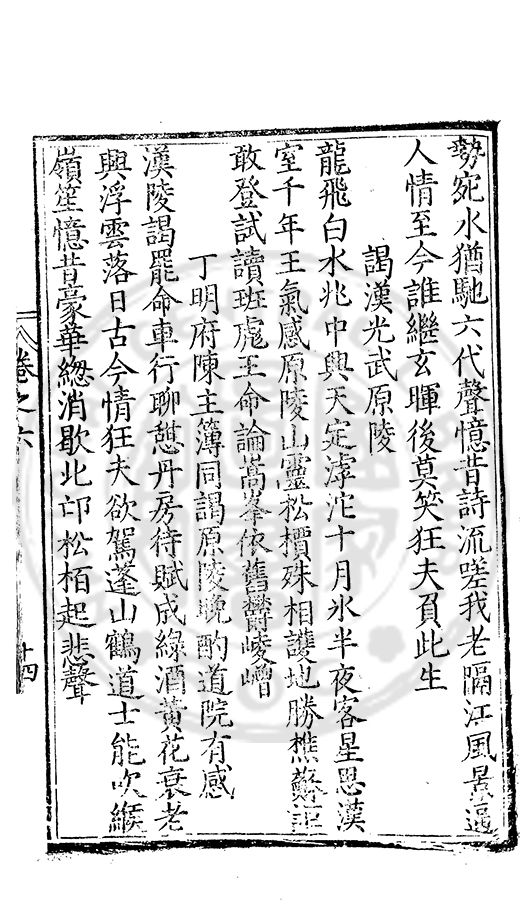 勢宛水猶馳六代聲憶昔詩流嗟我老隔江風景逼
人情至今誰繼玄暉後莫笑狂夫負此生
謁漢光武原陵
龍飛白水兆中興天定滹沱十月氷半夜客星思漢
室千年王氣感原陵山靈松檟殊相護地勝樵蘇
敢登試讀班彪王命論嵩峯依舊欝崚嶒
丁明府陳主簿同謁原陵晚酌道院有感
漢陵謁罷命車行聊憇丹房待賦成綠酒黃花衰老
興浮雲落日古今情狂夫欲駕蓬山鶴道士能吹緱
嶺笙憶昔豪華緫消歇北邙松栢起悲聲
卷之六
十四